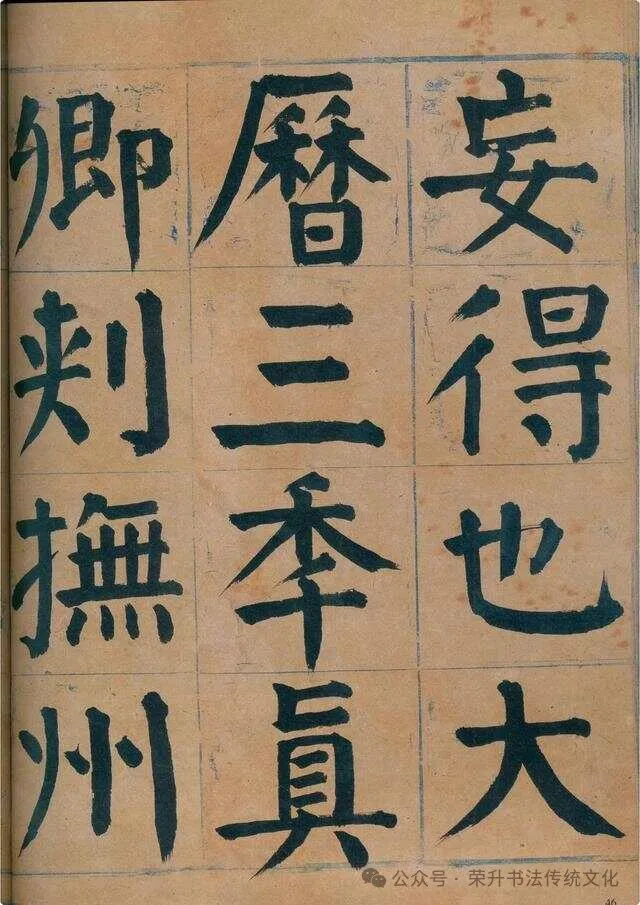 妄得也大
曆三年真
卿刺撫州
公众号·荣升书法传统文化
46